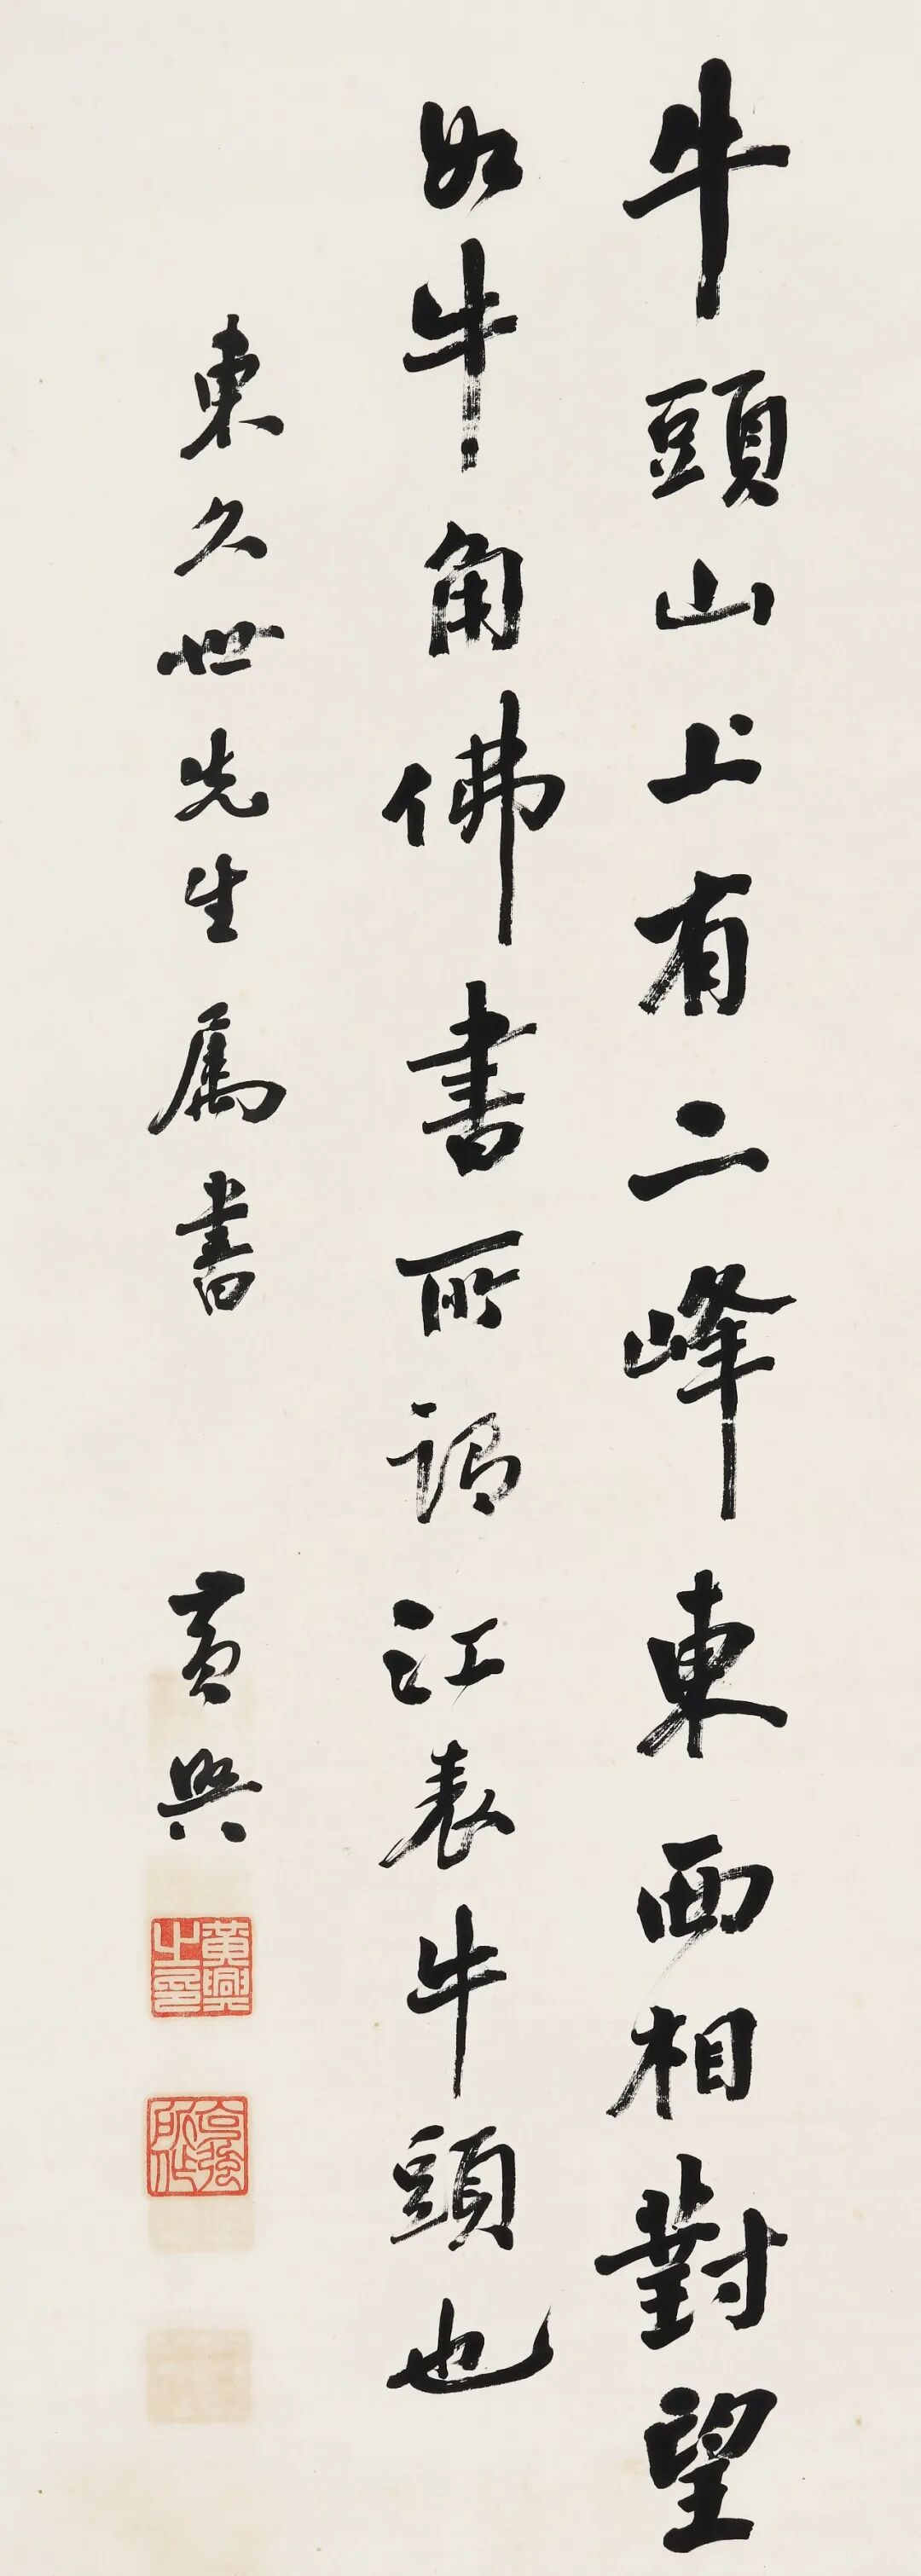 牛頭山上有二峰東西相對望
如牛角佛書所謂江表牛頭也
東久世先生属書
黃興
黃興之印